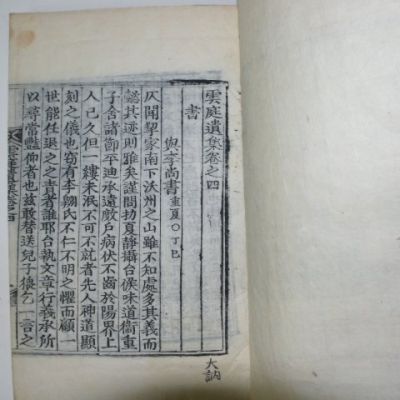 雲庭遺集卷之四
書
與李尚書 重夏○丁巳
仄聞挈家南下沃州之山雖不知處多其義而
諗其迹則雅矣謹問初夏靜攝台候味道衛重
子舍諸節平迪承遠戲戶病伏不齒於陽界上
人已久但一縷未泯不可不就者先人神道顯
刻之儀也竊有李翺氏不仁不明之懼而顧一
世能任退之之責者誰耶台執文章行義承所
以尋常艶仰者也玆敢替送兒子猿乞一言之
大訥